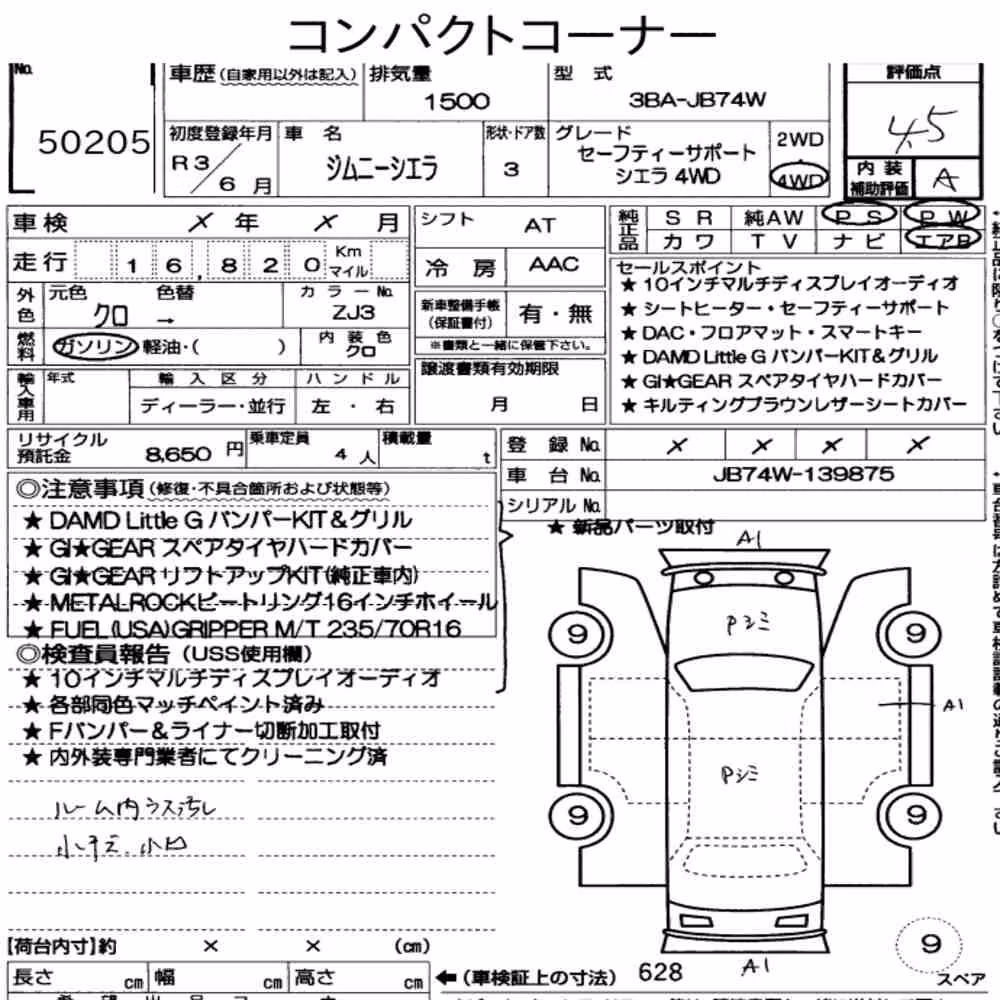 コンパクトコーナー
No. 50205
車歴(自家用以外は記入)
排気量 1500
型式 3BA-JB74W
評価点 4.5
初度登録年月 R3/6月
車名 ジムニーシエラ
形状・ドア数 3
グレード セーフティーサポート
シエラ 4WD
2WD
4WD
内装補助評価 A
車検 × 年 × 月
シフト AT
純正品 SR 純AW PS PW
カワ TV ナビ エアB
走行 16,820 Km マイル
冷房 AAC
セールスポイント
★ 10インチマルチディスプレイオーディオ
★ シートヒーター・セーフティーサポート
★ DAC・フロアマット・スマートキー
★ DAMD Little G バンパーKIT&グリル
★ GI★GEAR スペアタイヤハードカバー
★ キルティングブラウンレザーシートカバー
外色 元色 クロ → 色替
カラーNo. ZJ3
新車整備手帳(保証書付) 有・無
※書類と一緒に保管下さい。
燃料 ガソリン 軽油・( )
内装色 クロ
譲渡書類有効期限
月 日
輸入車用 年式
輸入区分 ディーラー・並行
ハンドル 左・右
リサイクル預託金 8,650 円
乗車定員 4 人
積載量 t
登録No. × × × ×
車台No. JB74W-139875
シリアルNo.
◎注意事項(修復・不具合箇所および状態等)
★ 新品パーツ取付
★ DAMD Little G バンパーKIT&グリル
★ GI★GEAR スペアタイヤハードカバー
★ GI★GEAR リフトアップKIT(純正車内)
★ METALROCKビートリング16インチホイール
★ FUEL(USA)GRIPPER M/T 235/70R16
◎検査員報告(USS使用欄)
★ 10インチマルチディスプレイオーディオ
★ 各部同色マッチペイント済み
★ Fバンパー&ライナー切断加工取付
★ 内外装専門業者にてクリーニング済
ルーム内ウス汚し
小キズ.小凹
A1
Pシミ
9 9
A1
Pシミ
9 9
9
A1
スペア
【荷台内寸】約 × × (cm)
長さ cm 幅 cm 高さ cm
←(車検証上の寸法) 628